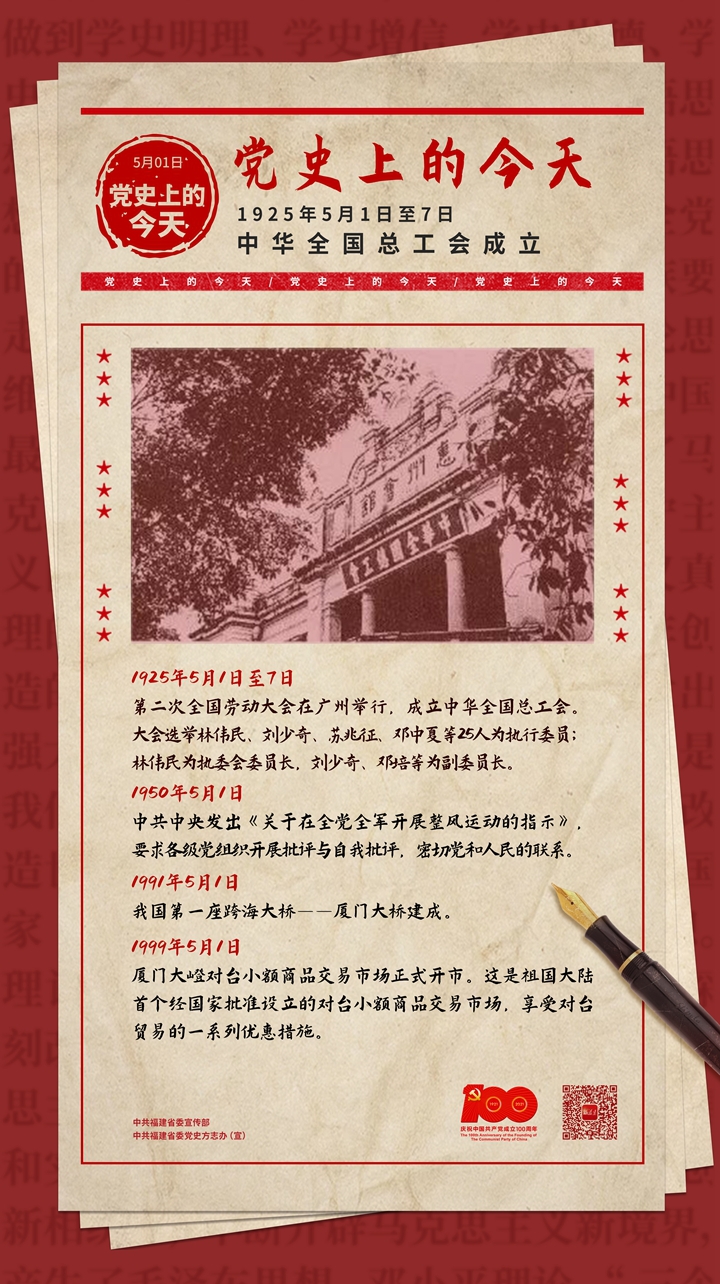 5月01日
党史上的
今天
党史上的今天
1925年5月1日至7日
中华全国总工会成立
党史上的今天/党史上的今天/党史上的今天
惠州會館
1925年5月1日至7日
第二次全国劳动大会在广州举行，成立中华全国总工会。
大会选举林伟民、刘少奇、苏兆征、邓中夏等25人为执行委员；
林伟民为执委会委员长，刘少奇、邓培等为副委员长。
1950年5月1日
中共中央发出《关于在全党全军开展整风运动的指示》，
要求各级党组织开展批评与自我批评，密切党和人民的联系。
1991年5月1日
我国第一座跨海大桥——厦门大桥建成。
1999年5月1日
厦门大嶝对台小额商品交易市场正式开市。这是祖国大陆
首个经国家批准设立的对台小额商品交易市场，享受对台
贸易的一系列优惠措施。
中共福建省委宣传部
中共福建省委党史方志办（宣）
100
1921 2021
庆祝中国共产党成立100周年
The 100th Anniversary of the Founding of
The Communist Party of China